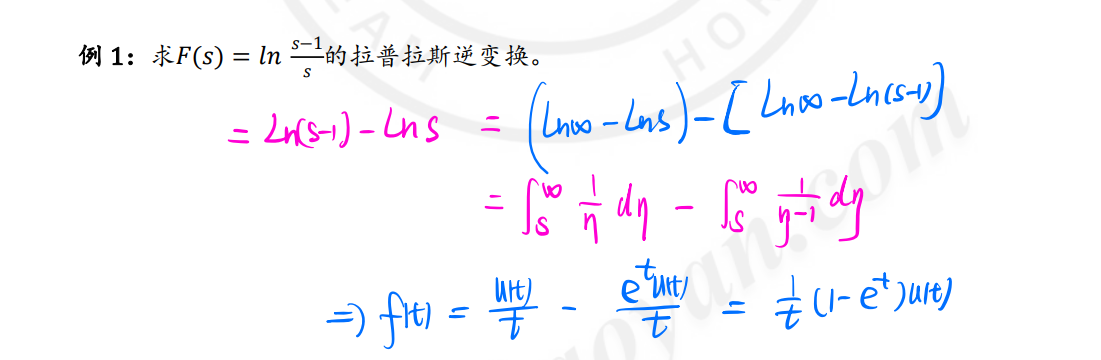 例 1：求F(s) = ln (s−1)/s 的拉普拉斯逆变换。
= Ln(s-1) - Ln s = (Ln∞ - Ln s) - [Ln∞ - Ln(s-1)]
= ∫_s^∞ 1/η dη - ∫_s^∞ 1/(η-1) dη
⇒ f(t) = u(t)/t - e^t u(t)/t = 1/t (1 - e^t) u(t)